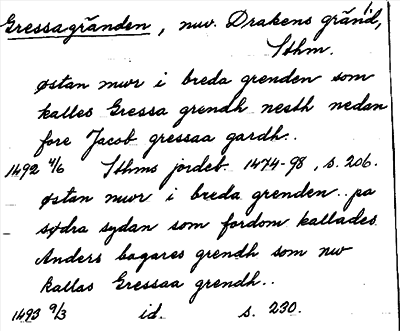 Gressagränden, nuv. Drakens gränd,
Sthm.
østan mwr i breda grenden som
kalles Gressa grendh nesth nedan
fore Jacob gressaa gardh..
1492 4/6 Sthms jordeb. 1474-98, s. 206.
østan mwr i breda grenden.. pa
sødra sydan som fordom kallades
Anders bagares grendh som nw
kallas Gressaa grendh..
1493 9/3 id. s. 230.